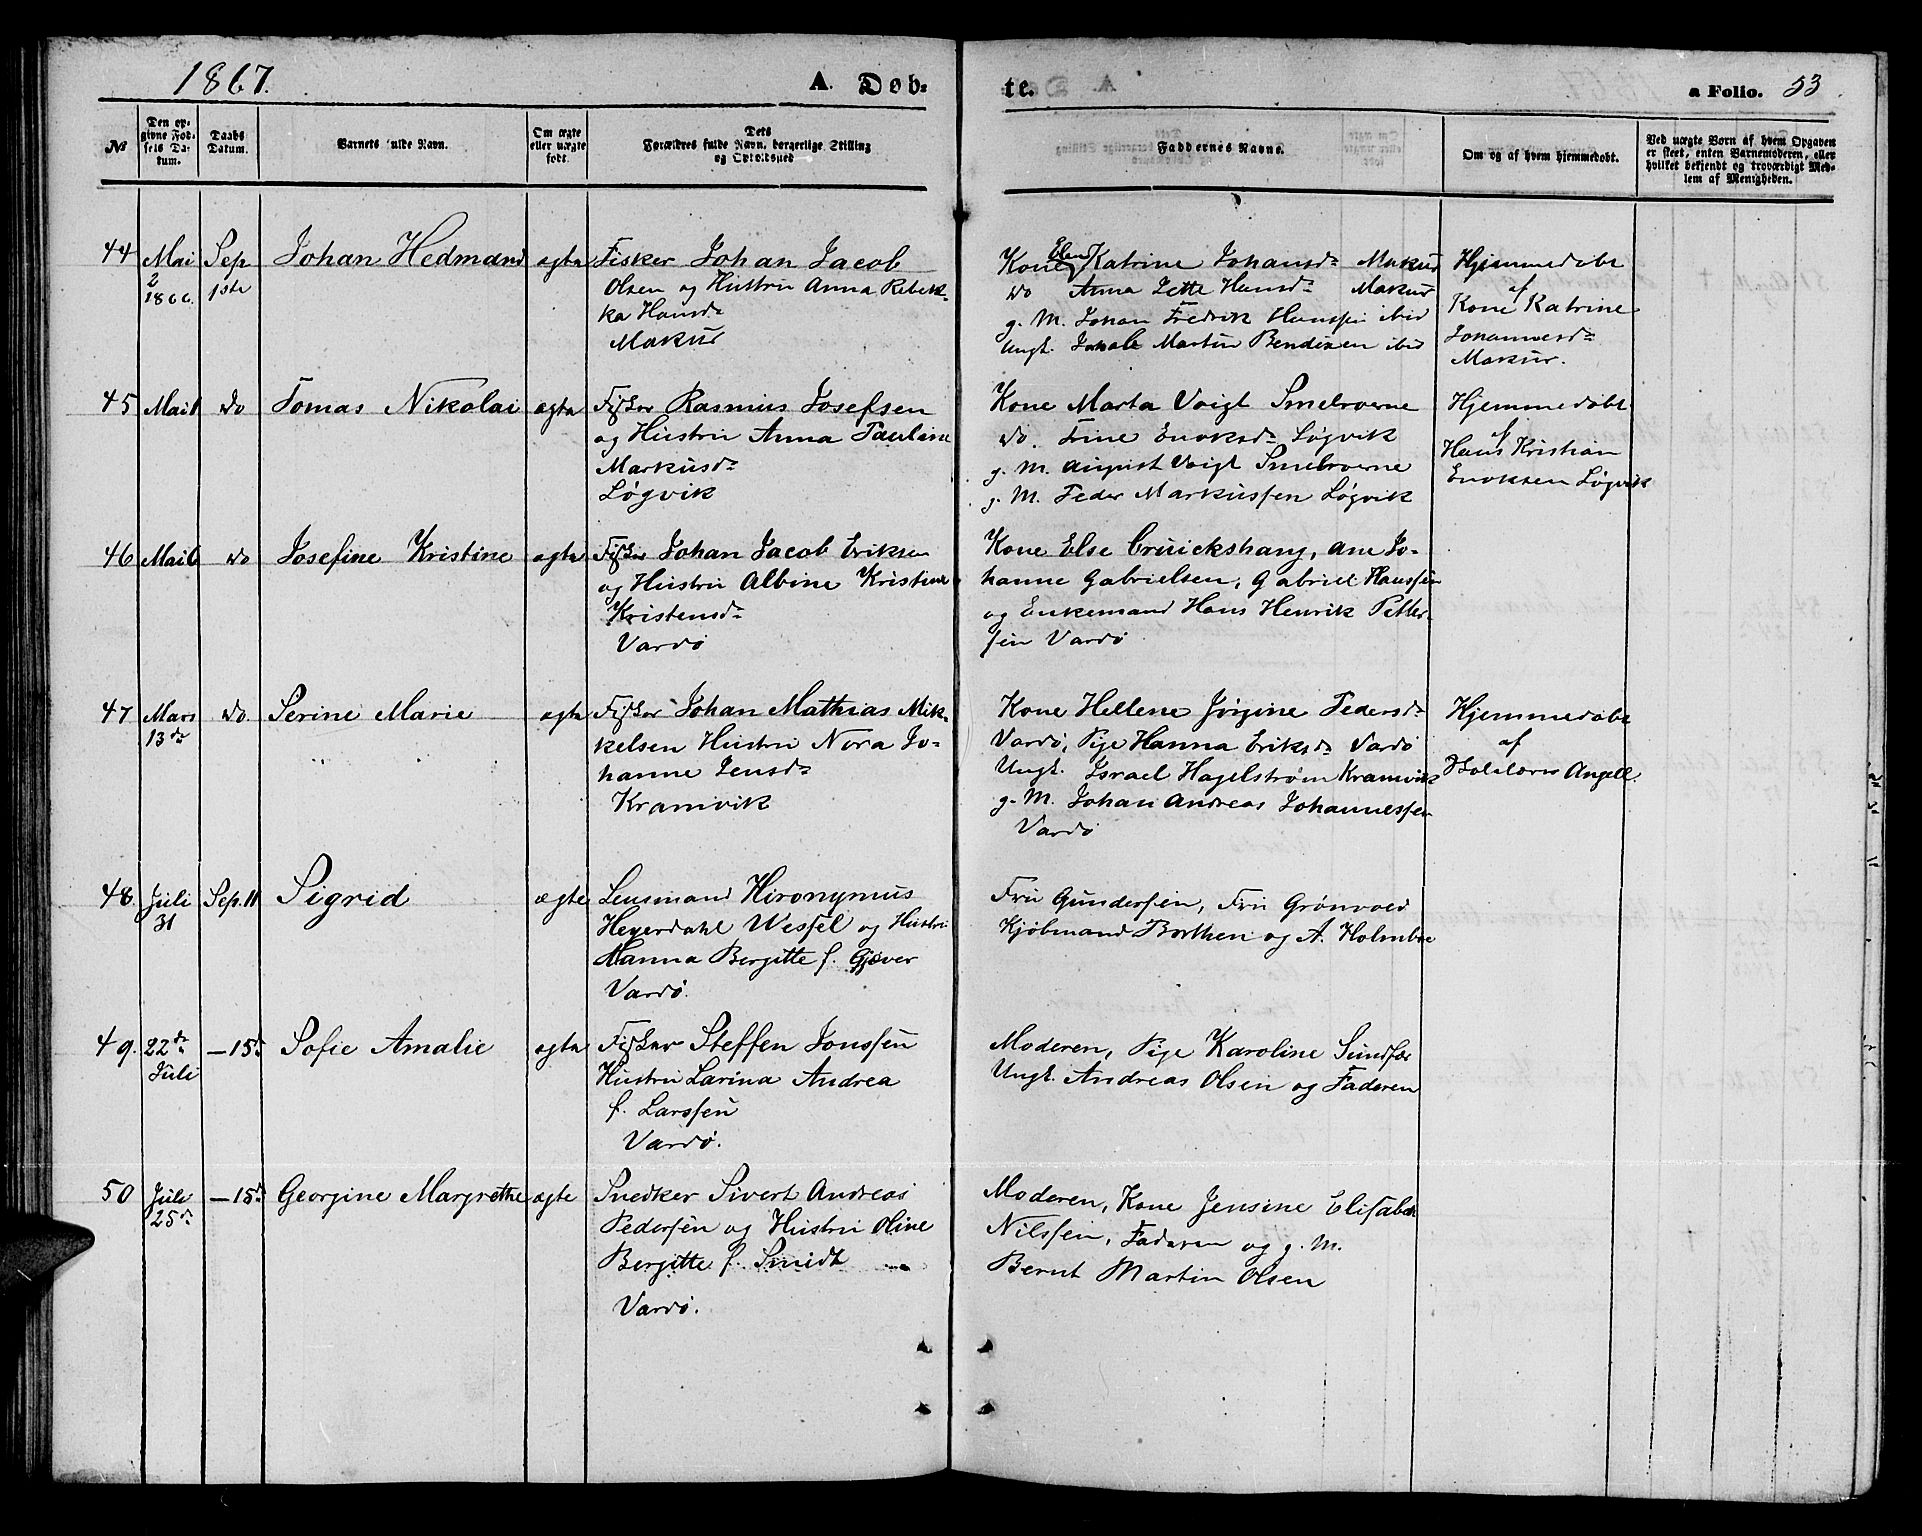 1867.
A. Døb-
te.
a Folio. 53.
No
Den opgivne Fødsels Datum.
Daabs Datum.
Barnets fulde Navn.
Om ægte eller uægte født.
Dets Forældres fulde Navn, borgerlige Stilling og Opholdssted
Faddernes Navne.
Om og af hvem hjemmedøbt.
Ved uægte Børn af hvem Opgaven er skeet, enten Barnemoderen, eller hvilket bekjendt og troværdigt Medlem af Menigheden.
44
Mai 2 1866.
Sep 1ste
Johan Hedmand
ægte
Fisker Johan Jacob
Olsen og Hustru Anna Rebek-
ka Hansd
Makur
Kone Katrine Johansd Makur
do Anna Lette Hansd Makur
g. M. Johan Fredrik Hanssen ibid
Ungk. Martin Bendixen ibid
Hjemmedøbt
af
Kone Katrine
Johannesd
Makur.
45
Mai 1
do
Tomas Nikolai
ægte
Fisker Rasmus Josefsen
og Hustru Anna Pauline
Markusd
Løgvik
Kone Marta Voigt Smelroerne
do. Trine Enoksd Løgvik
g. M. August Voigt Smelroerne
g. M. Peder Markussen Løgvik
Hjemmedøbt
af
Hans Kristian
Enoksen Løgvik
46
Mai 6
do
Josefine Kristine
ægte
Fisker Johan Jacob Eriksen
og Hustru Albine Kristine
Kristensd
Vardø
Kone Else Cruickshang, Ane Jo-
hanne Gabrielsen, Gabriel Hanssen
og Enkemand Hans Henrik Petter-
sen Vardø
47
Mars 13de
do
Serine Marie
ægte
Fisker Johan Mathias Mik-
kelsen Hustru Nora Jo-
hanne Jensd
Kramvik
Kone Hellene Jørgine Pedersd
Vardø, Pige Hanna Eriksd Vardø
Ungk. Israel Hagelstrøm Kramvik
g. M. Johan Andreas Johannessen
Vardø
Hjemmedøbt
af
Angell.
48.
Juli 31
Sep. 11
Sigrid
ægte
Lensmand Hironymus
Heyerdahl Wessel og Hustru
Hanna Bergitte f. Gjæver
Vardø.
Fru Gundersen, Fru Grønvold
Kjøbmand Borthen og A. Holmboe
49.
22de Juli
— 15de
Sofie Amalie
ægte
Fisker Steffen Jonssen
Hustru Larina Andrea
f. Larssen
Vardø.
Moderen, Pige Karoline Sundfær
Ungk. Andreas Olsen og Faderen
50
Juli 25de
— 15de
Georgine Margrethe
ægte
Snedker Sivert Andreas
Pedersen og Hustru Oline
Bergitte f. Smidt
Vardø.
Moderen, Kone Jensine Elisabeth
Nilssen, Faderen og g. M.
Bernt Martin Olsen